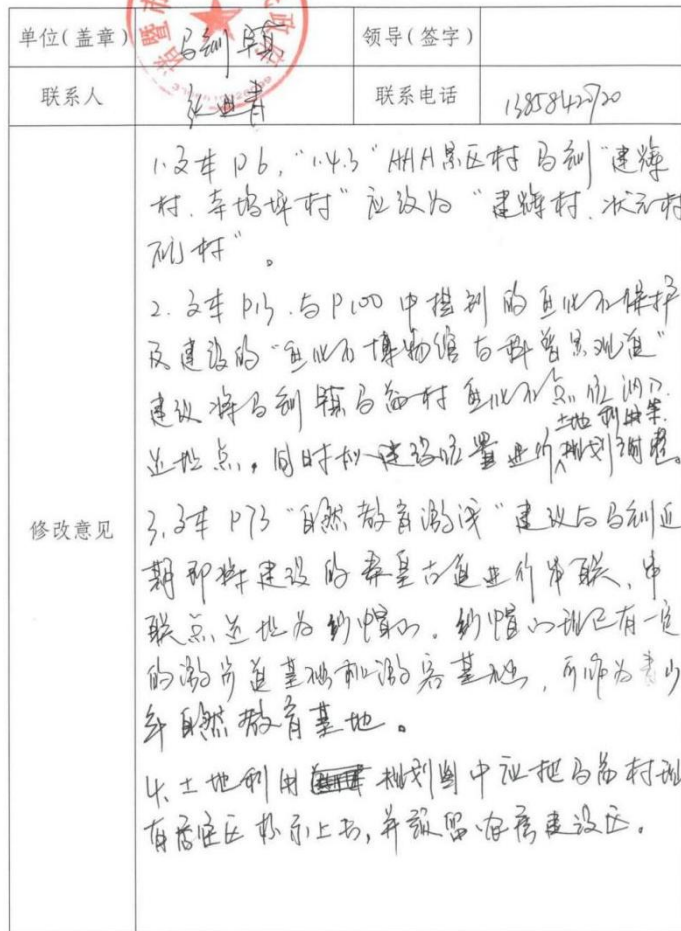 单位(盖章) 马剑镇 领导(签字)
联系人 联系电话 13858422920
修改意见
1.文本P6,“1.4.3”AAA景区村马剑“建辉
村、辛坞坪村”应改为“建辉村、状元村
”。
2.文本P13.与P100中提到的鱼化石保护
及建设的“鱼化石博物馆与科普景观道”
建议将马剑镇马益村鱼化石点位调入
选址点,同时拟建设位置进行土地利用性规划调整。
3.文本P73“自然教育游线”建议与马剑近
期即将建设的秦皇古道进行串联,串
联点选址为纱帽山。纱帽山现已有一定
的游步道基础和游客基地,可作为青少
年自然教育基地。
4.土地利用规划图中应把马益村现
有居住区标示上去,并预留居建设区。